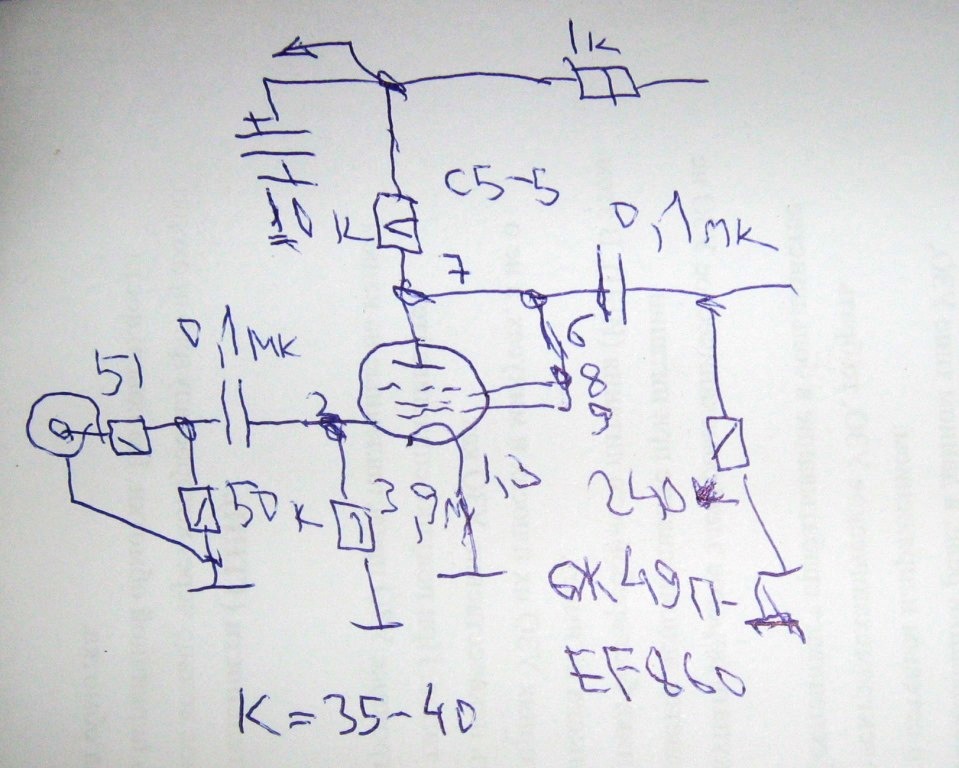 1к
С5-5
10 к
0,1мк
7
6
0,1мк
51
8
2
9
50 к
3,9м
1,3
240к
6Ж49П-Д
EF860
К = 35-40